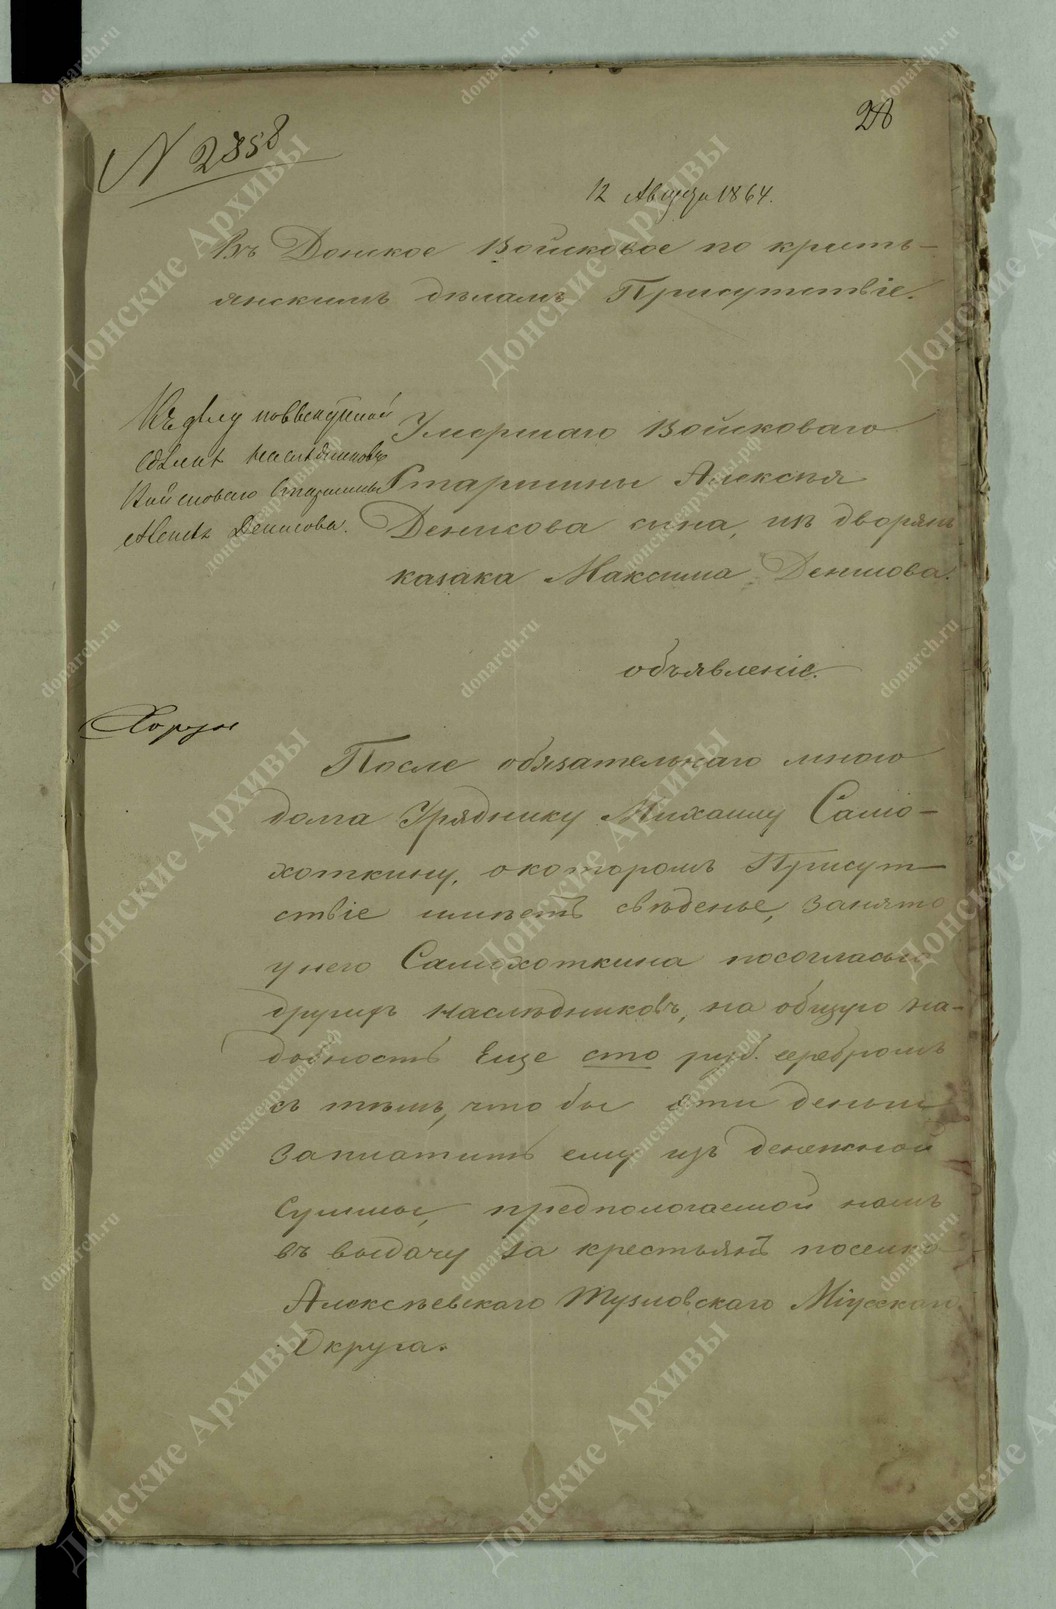 28
N 2358
12 Августа 1864.
Въ Донское Войсковое по кресть-
янскимъ дѣламъ Присутствіе.
Къ дѣлу по
наслѣдниковъ
Войсковаго Старшины
Алексѣя Денисова.
Умершаго Войсковаго
Старшины Алексѣя
Денисова сына, изъ дворянъ
казака Максима Денисова.
объявленіе.
После обязательнаго мною
долга Уряднику Михаилу Само-
хоткину, о которомъ Присут-
ствіе имѣетъ свѣденье, занято
у него Самохоткина по согласью
другихъ наслѣдниковъ, на общую на-
добность Еще сто руб. серебромъ
съ тѣмъ, что бы эти деньги
заплатить ему изъ денежной
суммы, предпологаемой намъ
въ выдачу за крестьянъ поселка
Алексѣевскаго Тузловскаго Міусскаго
Округа.
Донские Архивы
donarch.ru
донскиеархивы.рф